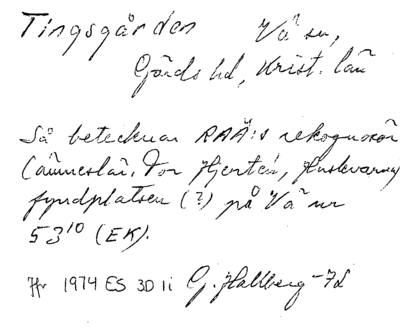 Tingsgården Vä sn,
Gärds hd, Krist. län
Så betecknar RAÄ:s rekognosör
(ämneslär. Tor Hjertén, Huslevarny
fyndplatsen (?) på Vä nr
53¹⁰ (EK).
Jfr 1974 ES 3D 1i G. Hallberg -78